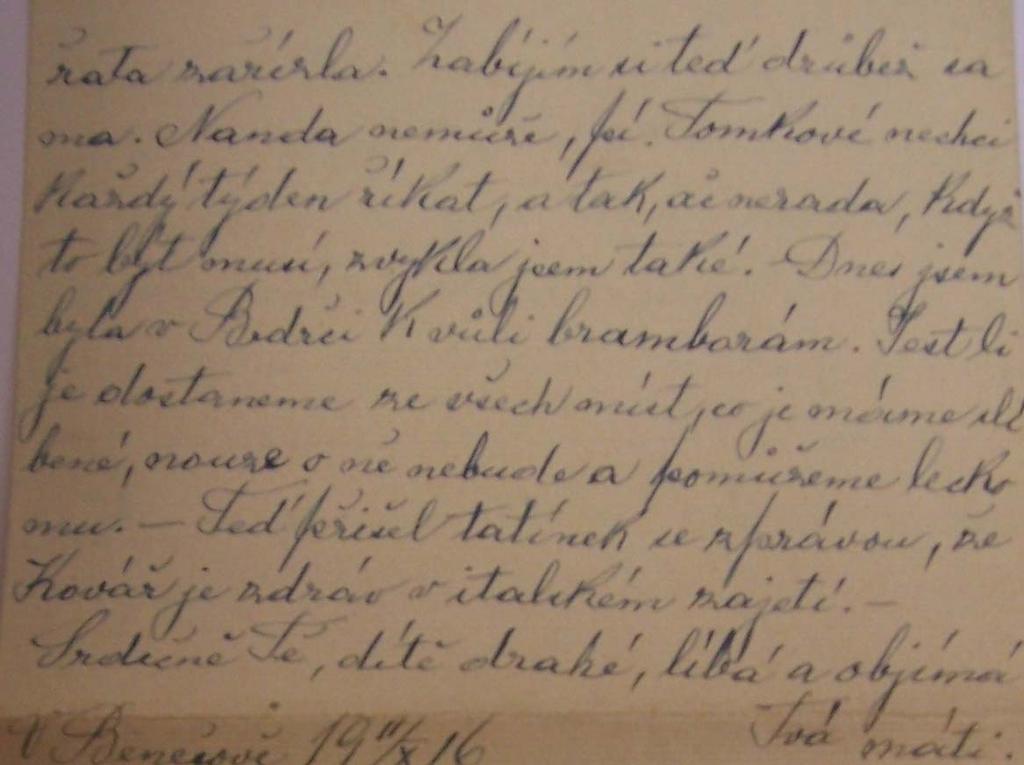 řata zařízla. Zabíjím si teď drůbež sa
ma. Nanda nemůže, pí. Tomkové nechci
každý týden říkat, a tak, ač nerada, když
to být musí, zvykla jsem také. – Dnes jsem
byla v Bedrči k vůli bramborám. Jest li
je dostaneme ze všech míst, co je máme slí
bené, nouze o ně nebude a pomůžeme lecko
mu. – Teď přišel tatínek se zprávou, že
Kovář je zdráv v italském zajetí. –
Srdečně Tě, dítě drahé, líbá a objímá
V Benešově 19 11/X 16 Tvá máti.